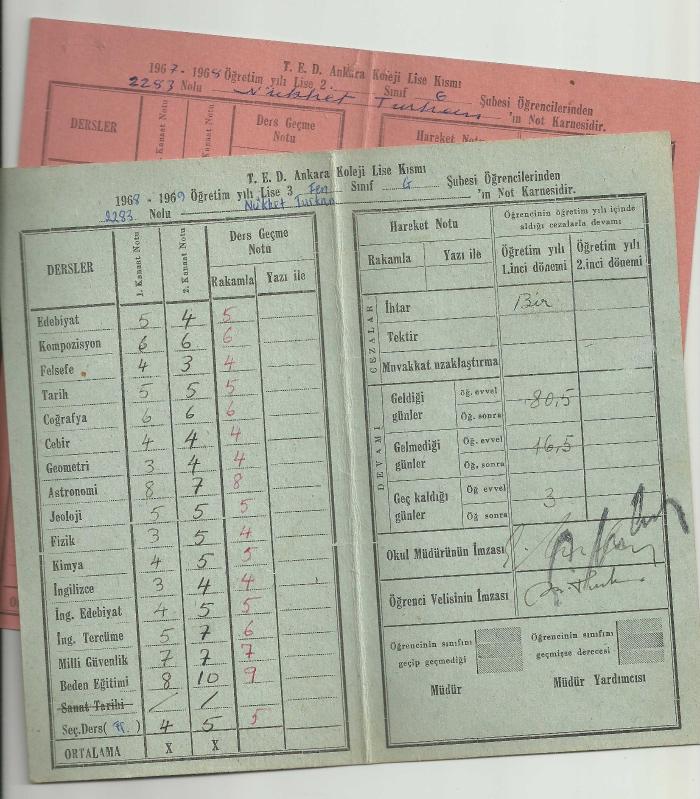 T. E. D. Ankara Koleji Lise Kısmı
1967 - 1968 Öğretim yılı Lise 2 . Sınıf G Şubesi Öğrencilerinden
2283 Nolu Nükhet Turkan 'ın Not Karnesidir.
DERSLER
Kanaat Notu
Kanaat Notu
Ders Geçme
Notu
Hareket Notu
T. E. D. Ankara Koleji Lise Kısmı
1968 - 1969 Öğretim yılı Lise 3 Fen Sınıf G Şubesi Öğrencilerinden
2283 Nolu Nükhet Turkan 'ın Not Karnesidir.
DERSLER
1. Kanaat Notu
2. Kanaat Notu
Ders Geçme
Notu
Rakamla Yazı ile
Edebiyat 5 4 5
Kompozisyon 6 6 6
Felsefe 4 3 4
Tarih 5 5 5
Coğrafya 6 6 6
Cebir 4 4 4
Geometri 3 4 4
Astronomi 8 7 8
Jeoloji 5 5 5
Fizik 3 5 4
Kimya 4 5 5
İngilizce 3 4 4
İng. Edebiyat 4 5 5
İng. Tercüme 5 7 6
Milli Güvenlik 7 7 7
Beden Eğitimi 8 10 9
Sanat Tarihi / /
Seç.Ders( Fr. ) 4 5 5
ORTALAMA X X
Hareket Notu
Rakamla Yazı ile
Öğrencinin öğretim yılı içinde
aldığı cezalarla devamı
Öğretim yılı
1.inci dönemi
Öğretim yılı
2.inci dönemi
CEZALAR
İhtar Bir
Tektir
Muvakkat uzaklaştırma
DEVAMI
Geldiği
günler
öğ. evvel
Öğ. sonra
80,5
Gelmediği
günler
Öğ. evvel
Öğ. sonra
16,5
Geç kaldığı
günler
Öğ evvel
Öğ sonra
3
Okul Müdürünün İmzası
Öğrenci Velisinin İmzası
Öğrencinin sınıfını
geçip geçmediği
Öğrencinin sınıfını
geçmişse derecesi
Müdür
Müdür Yardımcısı